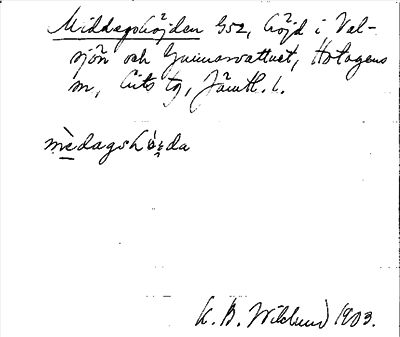 Middagshöjden G52, höjd i Val-
sjön och Gunnarvattnet, Hotagens
sn, Lits tg, Jämtl. l.
mèdagshö̀i̯da
K. B. Wiklund 1903.